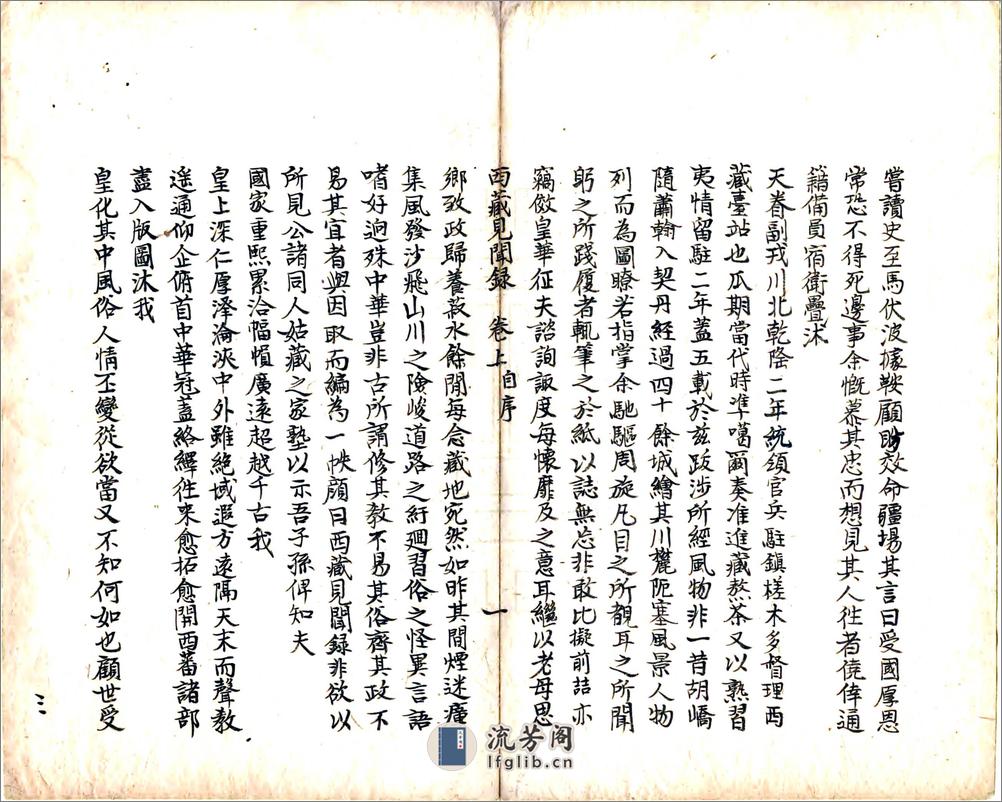 嘗讀史至馬伏波據鞍顧盼效命疆場其言曰受國厚恩
常恐不得死邊事余慨慕其忠而想見其人徃者僥倖通
籍備員宿衛疊沐
天眷副戎川北乾隆二年統領官兵駐鎮槎木多督理西
藏臺站也瓜期當代時準噶爾奏准進藏熬茶又以熟習
夷情留駐二年蓋五載於兹跋涉所經風物非一昔胡嶠
隨蕭翰入契丹經過四十餘城繪其川麓阨塞風景人物
列而為圖瞭若指掌余馳驅周旋凡目之所覩耳之所聞
躬之所踐履者輒筆之於紙以誌無忘非敢比擬前喆亦
竊倣皇華征夫諮詢諏度每懷靡及之意耳繼以老母思
西藏見聞録 卷上 自序 一
鄉致政歸養菽水餘閒每念藏地宛然如昨其間煙迷瘴
集風發沙飛山川之險峻道路之紆廻習俗之怪異言語
嗜好逈殊中華豈非古所謂修其教不易其俗齊其政不
易其宜者與因取而編為一帙顔曰西藏見聞録非欲以
所見公諸同人姑藏之家塾以示吾子孫俾知夫
國家重熙累洽幅幀廣遠超越千古我
皇上深仁厚澤淪浹中外雖絶域遐方遠隔天末而聲教
遥通仰企俯首中華冠蓋絡繹徃来愈拓愈開西蕃諸部
盡入版圖沐我
皇化其中風俗人情丕變從欲當又不知何如也顧世受
三
流芳阁
lfglib.cn